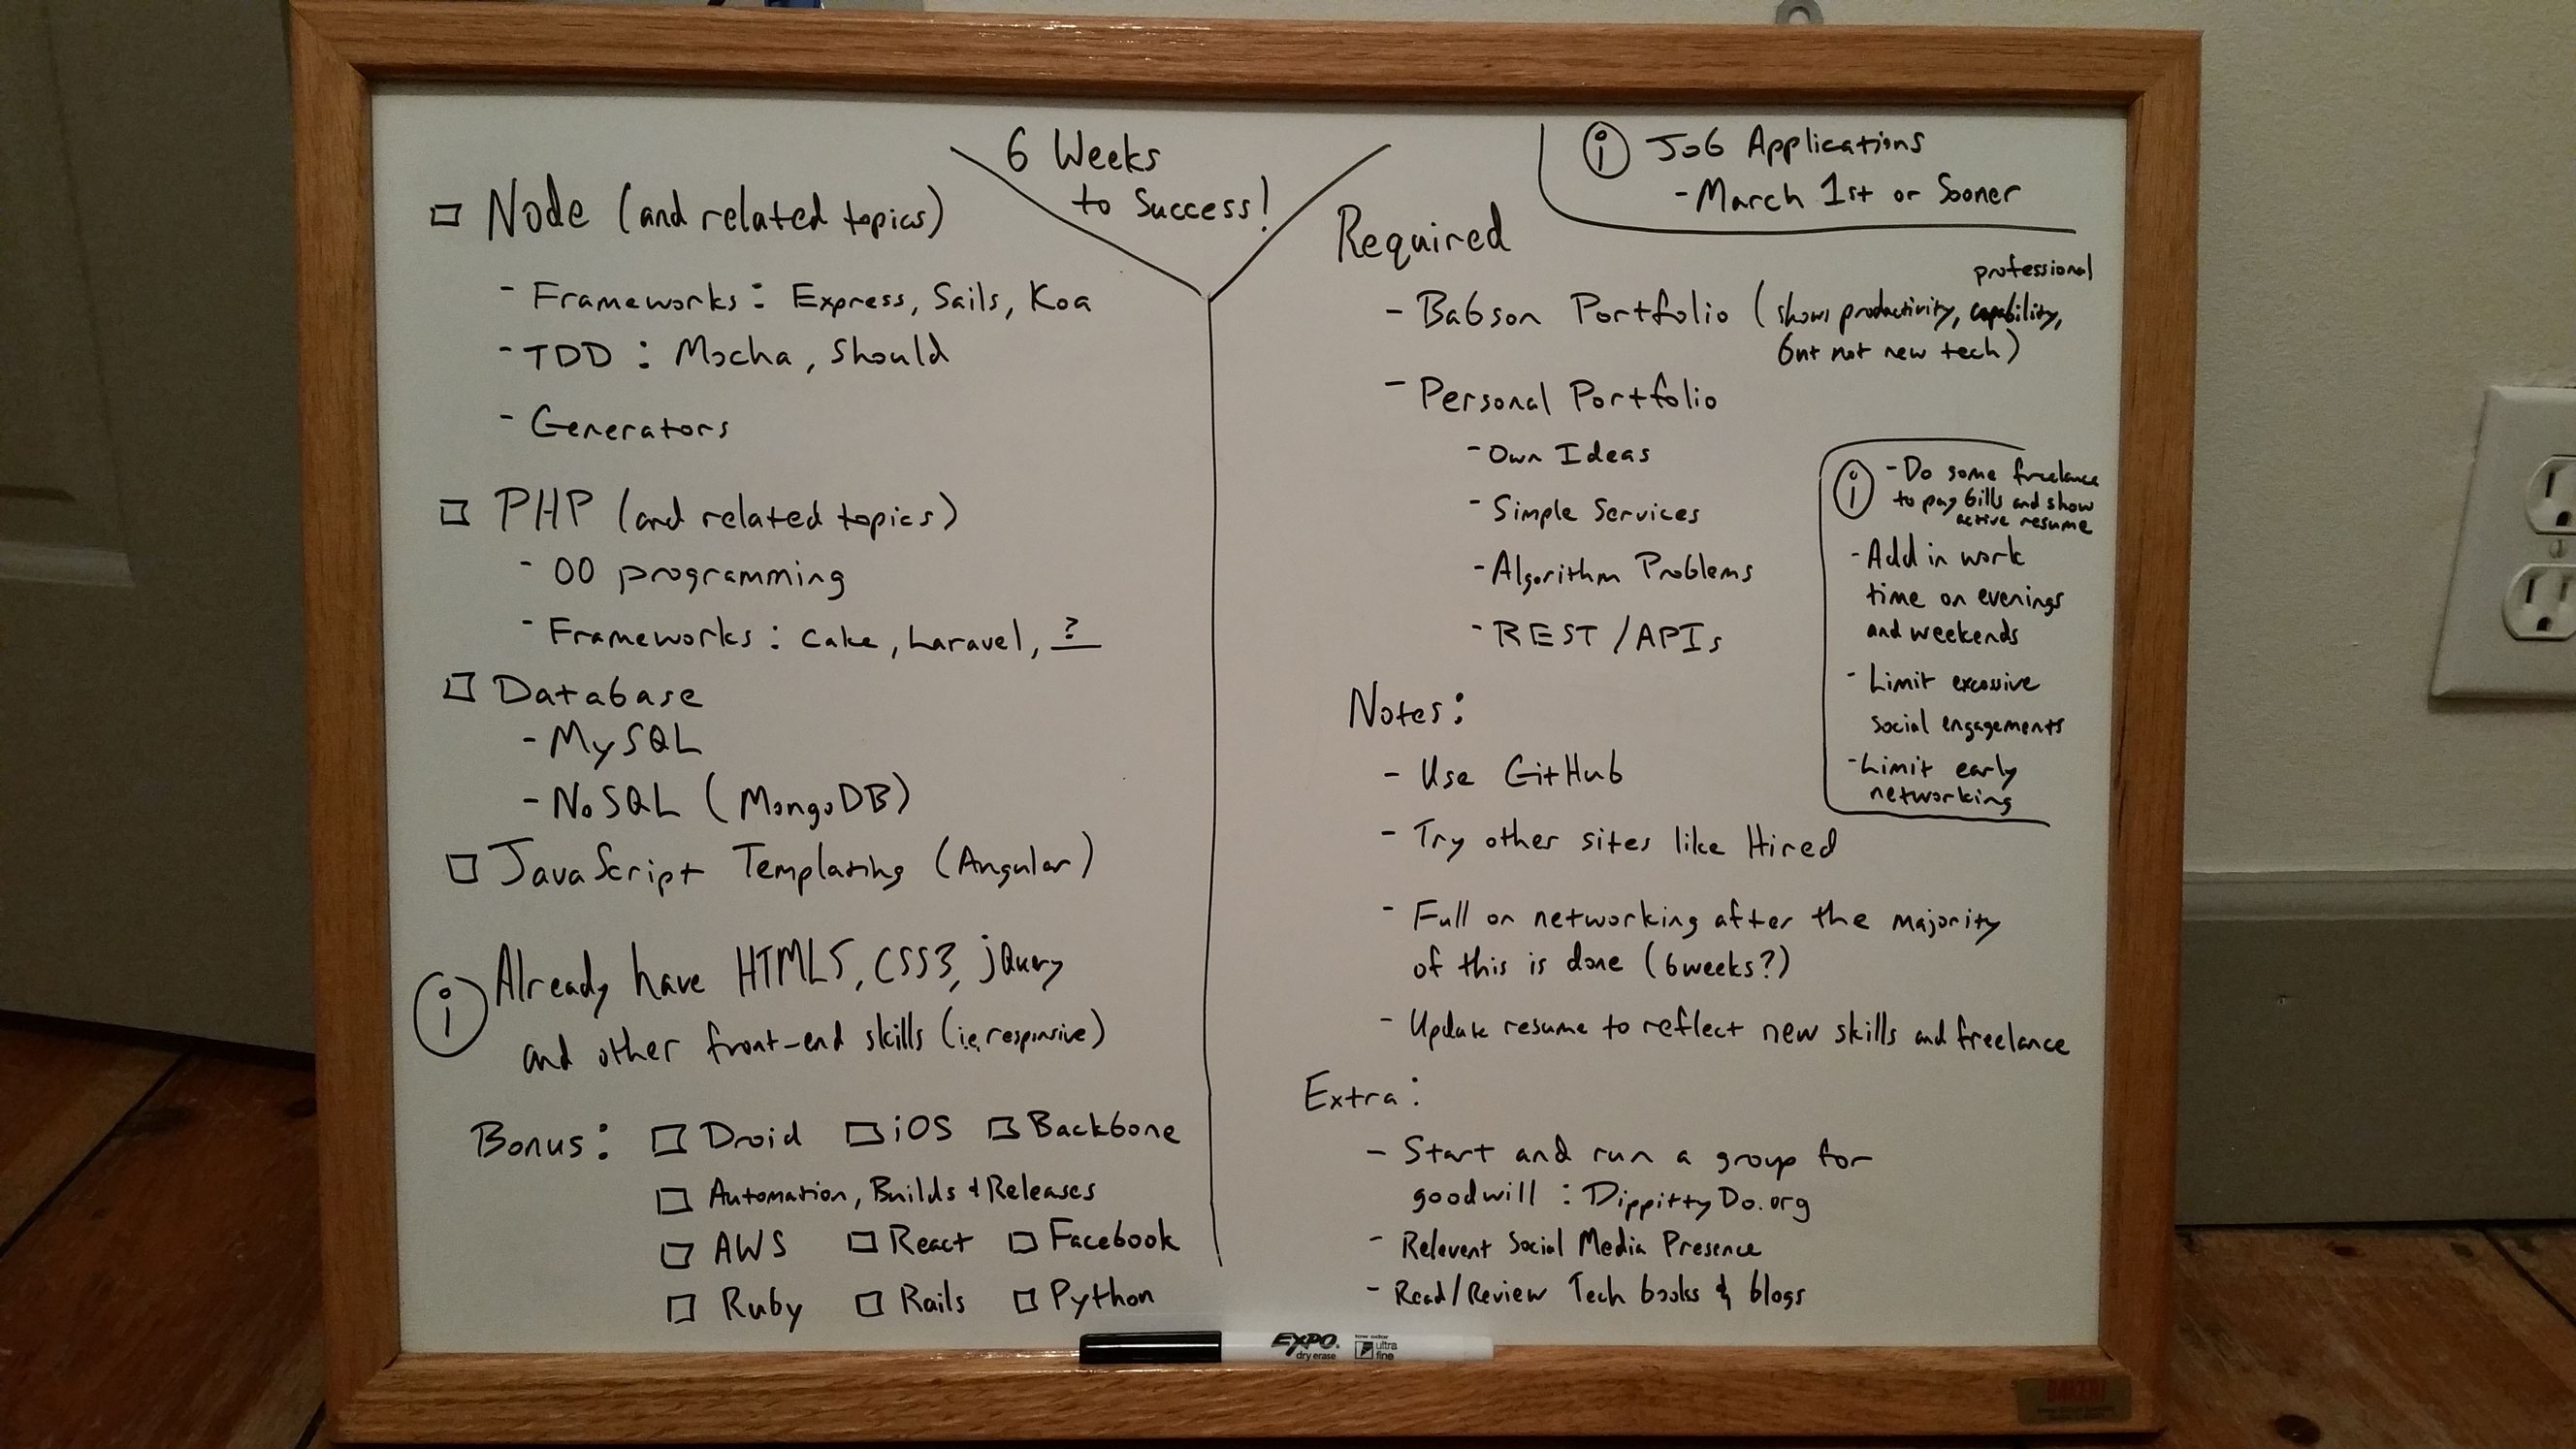 6 Weeks
to Success!
☐ Node (and related topics)
- Frameworks: Express, Sails, Koa
- TDD: Mocha, Should
- Generators
☐ PHP (and related topics)
- OO programming
- Frameworks: Cake, Laravel, ?
☐ Database
- MySQL
- NoSQL (MongoDB)
☐ JavaScript Templating (Angular)
i Already have HTML5, CSS3, jQuery
and other front-end skills (i.e. responsive)
Bonus: ☐ Droid ☐ iOS ☐ Backbone
☐ Automation, Builds + Releases
☐ AWS ☐ React ☐ Facebook
☐ Ruby ☐ Rails ☐ Python
i Job Applications
- March 1st or Sooner
Required
professional
- Babson Portfolio (shows productivity, capability,
but not new tech)
- Personal Portfolio
- Own Ideas
- Simple Services
- Algorithm Problems
- REST/APIs
i - Do some freelance
to pay bills and show
active resume
- Add in work
time on evenings
and weekends
- Limit excessive
social engagements
- Limit early
networking
Notes:
- Use GitHub
- Try other sites like Hired
- Full on networking after the majority
of this is done (6 weeks?)
- Update resume to reflect new skills and freelance
Extra:
- Start and run a group for
goodwill: DippittyDo.org
- Relevent Social Media Presence
- Read/Review Tech books & blogs
EXPO
dry erase
low odor
ultra
fine